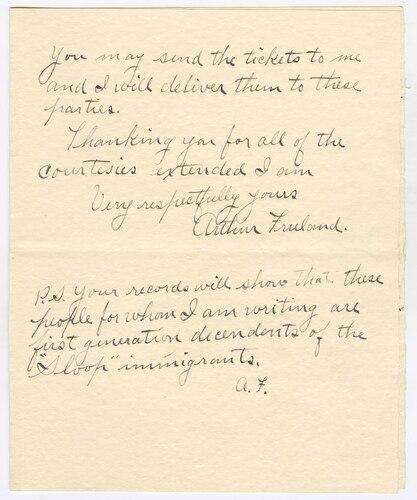 You may send the tickets to me
and I will deliver them to these
parties.
Thanking you for all of the
courtesies extended I am
Very respectfully yours
Arthur Fruland.
P.S. Your records will show that these
people for whom I am writing are
first generation decendents of the
"Sloop" immigrants.
A. F.